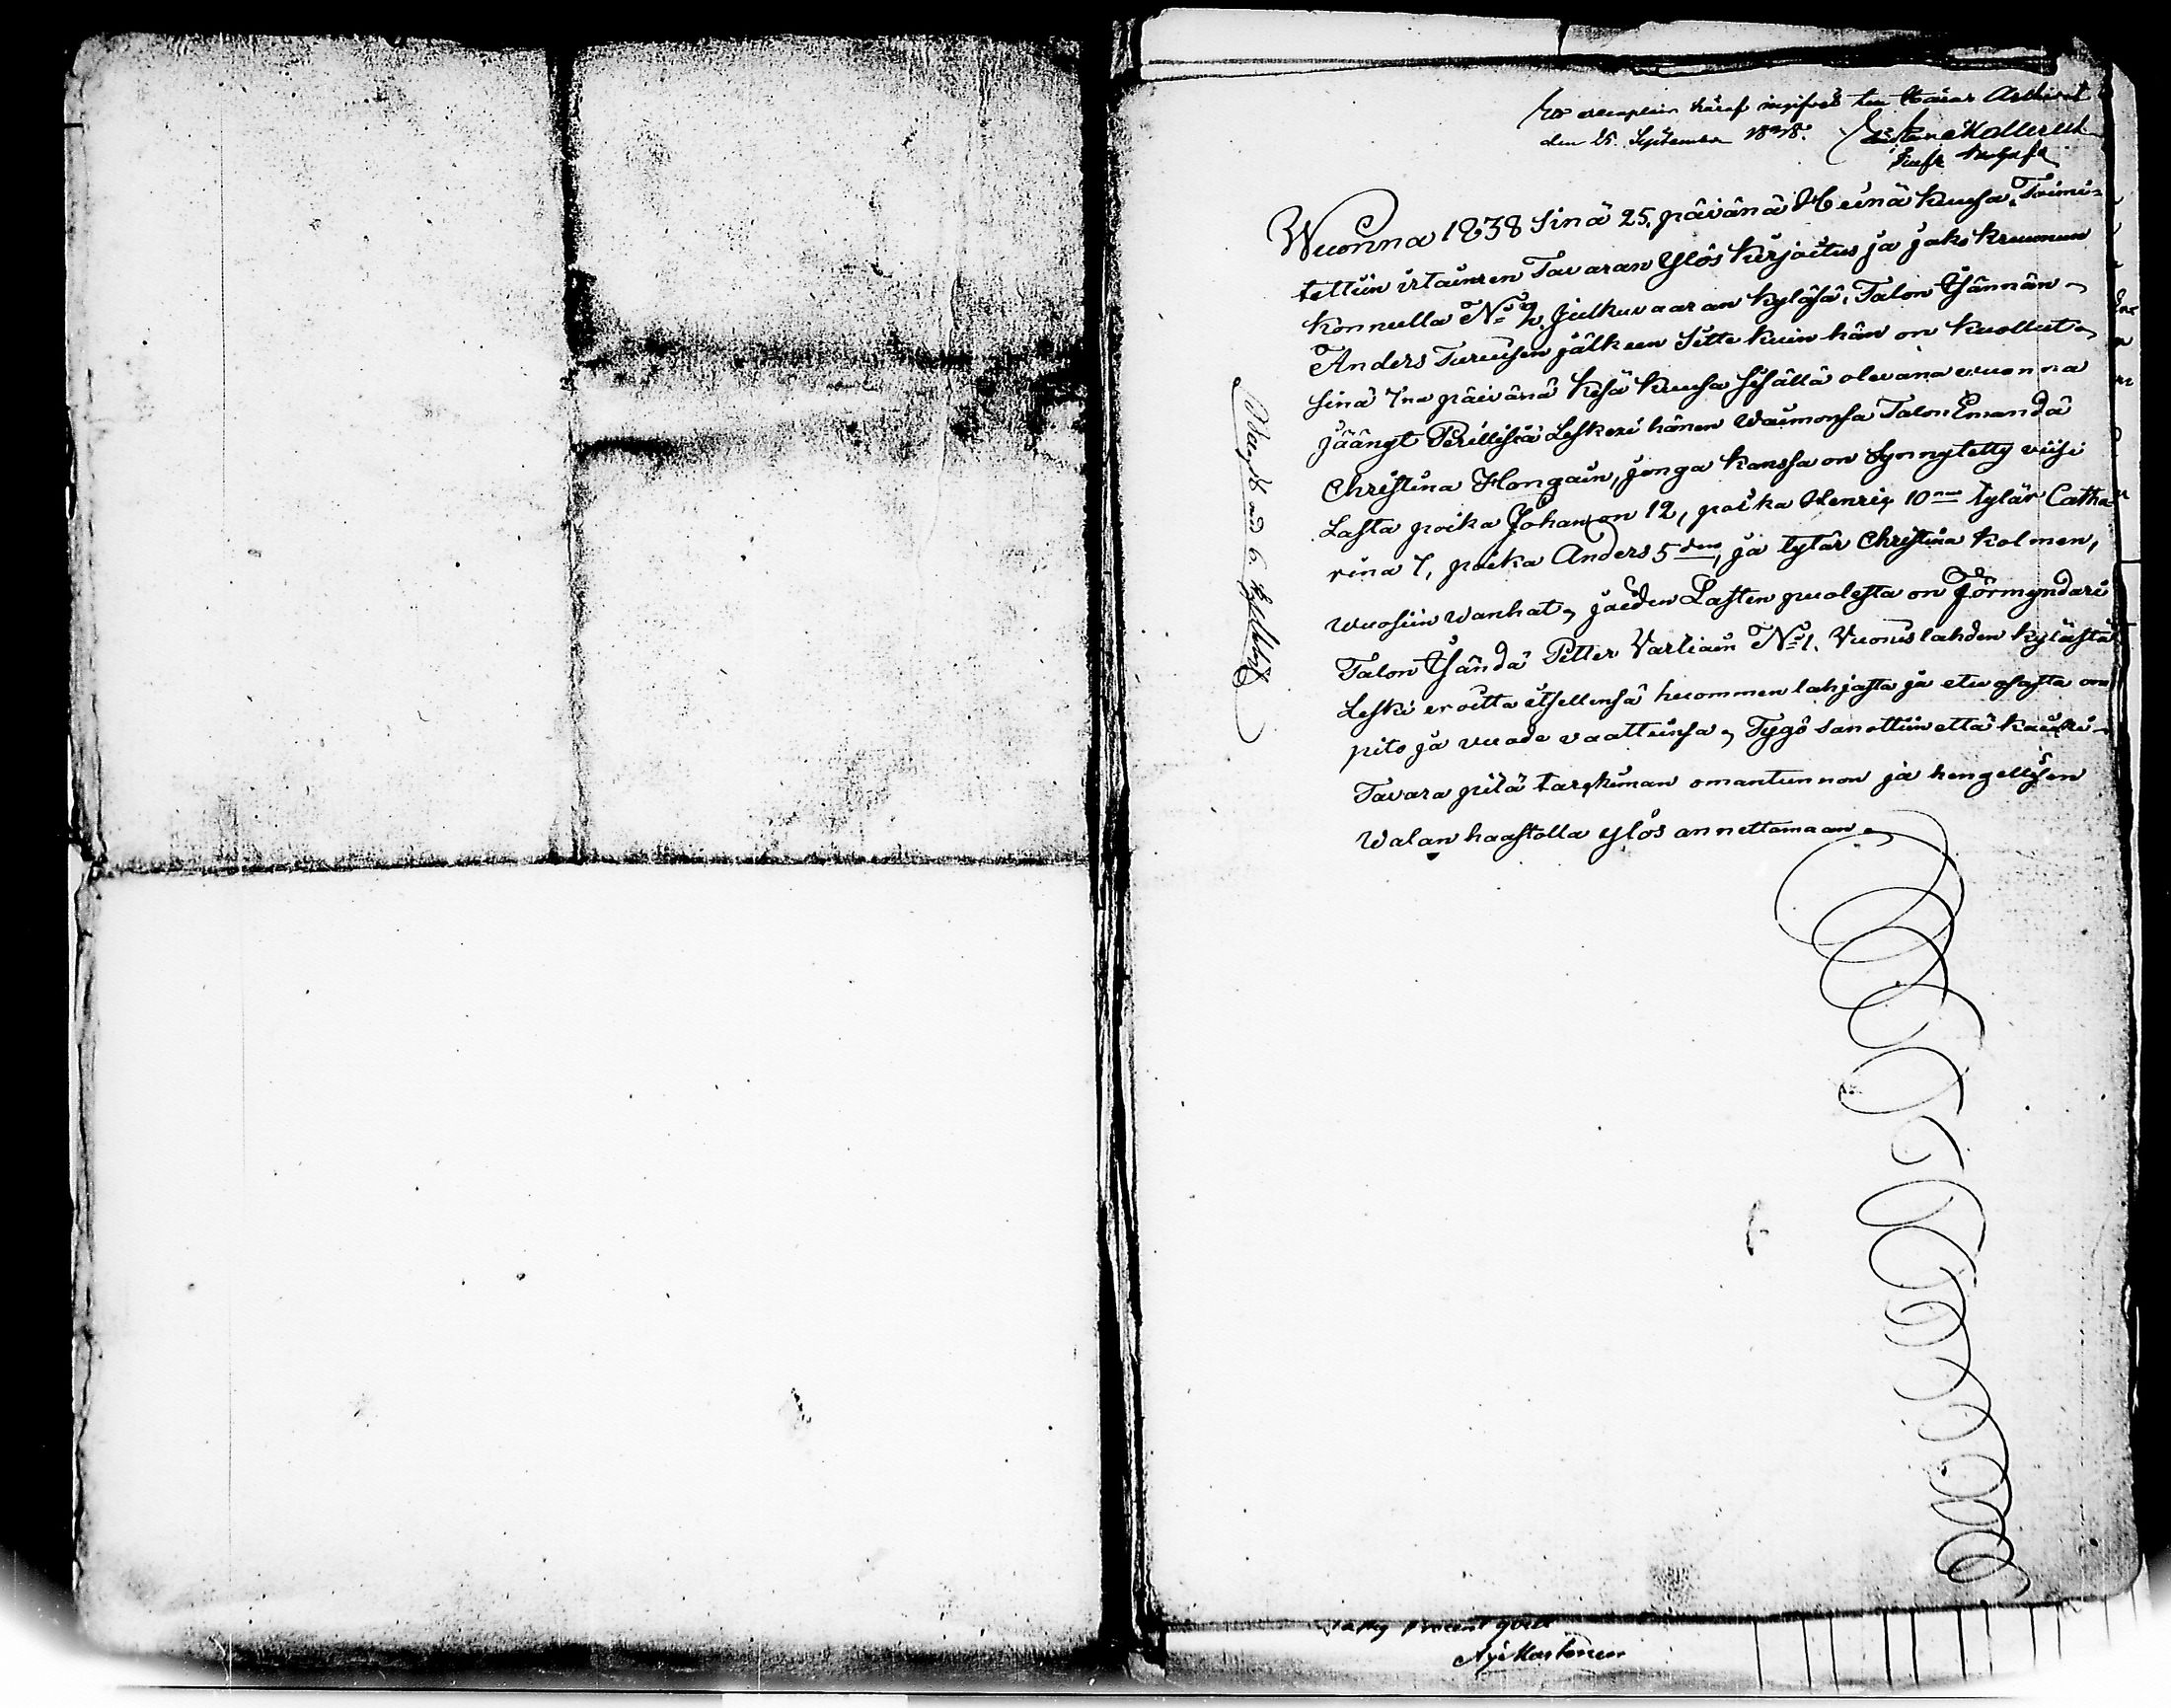 Ett exemplar häraf ingifves till Härads Archivet
den 25. September 1838.
Wuonna 1838 Sinä 25. päivänä Heinä kuusa, Toimi-
tettiin irtaimen Tavaran Ylös kirjoitus ja jako kruunun
konnulla No 2. Julkuvaaran kyläsä, Talon Isännän
Anders Turuisen jälkeen Sitte kuin hän on kuollut
sinä 7na päivänä Kesä kuusa sisällä olevana vuonna
Jäängt Perillisiä Leskexi hänen waimonsa Talon Emändä
Christina Hongain, jonga kanssa on Synnytetty viisi
Lasta poika Johan on 12, poika Henrix 10nen tytär Catha-
rina 7, poika Anders 5den, ja tytär Christina kolmen,
wuosiin wanhat, joiden Lasten puolesta on Förmyndari
Talon Isändä Petter Variain No 1. Vuonislahden kylästä
Leski eroitta itsellensä huommen lahjasta ja etu osasta
pito ja vuode vaatteinsa, Tygö sanottiin että kaikki
Tavara pitä tarkiman omantunnon ja hengellisen
Walan haastolla ylös annettamaan